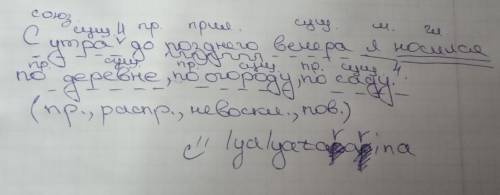 союз
сущ. пр. прил. сущ. м. гл.
С утра до позднего вечера я носился
пр. сущ. пр. сущ. пр. сущ.
по деревне, по огороду, по саду.
(пр., распр., невоскл., пов.)